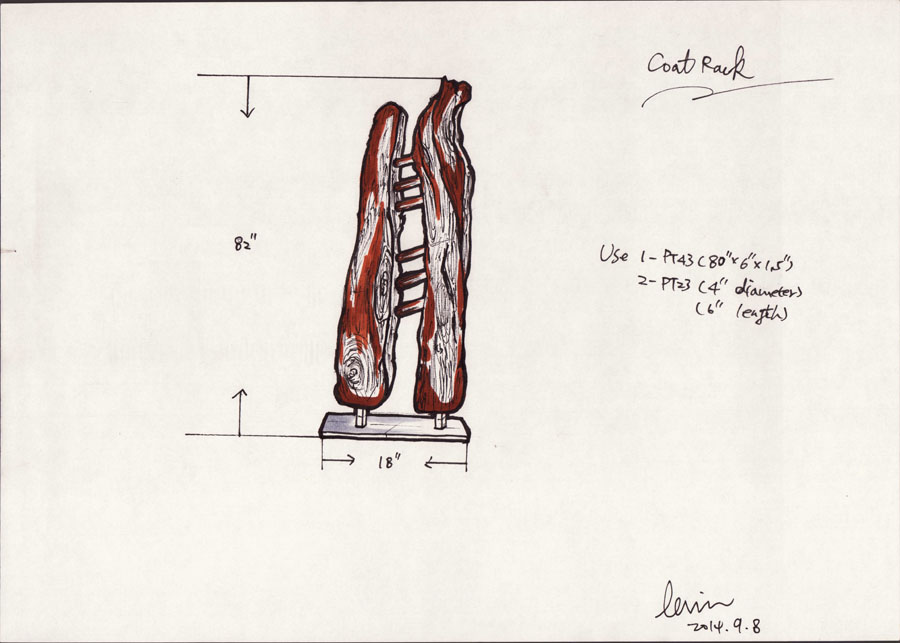 Coat Rack
82"
Use 1-PT43 (80"x6"x1.5")
2-PT23 (4" diameter)
(6" length)
18"
2014.9.8